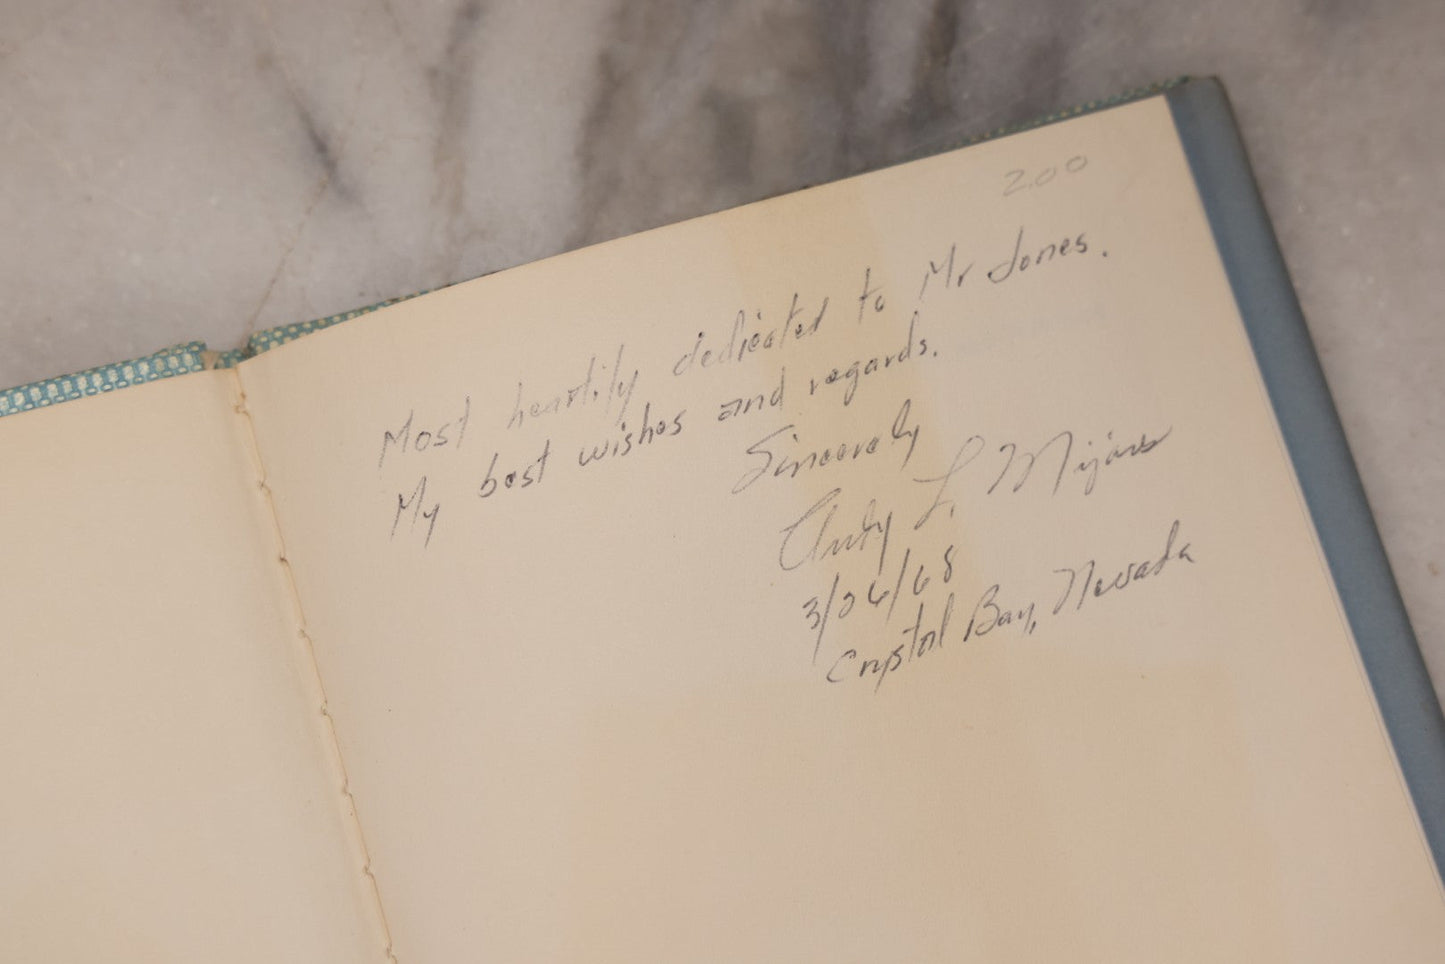 2.00
Most heartily dedicated to Mr Jones.
My best wishes and regards.
Sincerely
Andy L. Mijares
3/26/68
Crystal Bay, Nevada